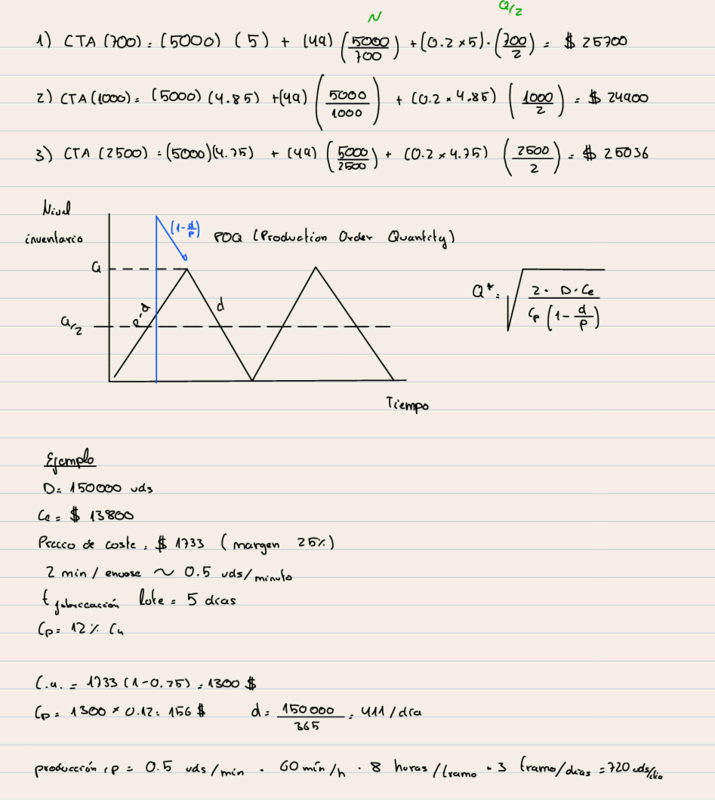 N Q/2
1) CTA(700) = (5000) (5) + (49) (5000/700) + (0.2 x 5) · (700/2) = $ 25700
2) CTA(1000) = (5000) (4.85) + (49) (5000/1000) + (0.2 x 4.85) (1000/2) = $ 24900
3) CTA(2500) = (5000)(4.75) + (49) (5000/2500) + (0.2 x 4.75) (2500/2) = $ 25036
Nivel
inventario
(1-d/p)
POQ (Production Order Quantity)
Q
p-d
d
Q/2
Q* = √(2 · D · Ce / Cp (1 - d/p))
Tiempo
Ejemplo
D= 150000 uds
Ce = $ 13800
Precio de coste = $ 1733 (margen 25%)
2 min/envase ~ 0.5 uds/minuto
t fabricación lote = 5 días
Cp = 12% Cu
C.u. = 1733 (1-0.25) = 1300 $
Cp = 1300 x 0.12 = 156 $ d = 150000/365 = 411/día
producción, p = 0.5 uds/min · 60 min/h · 8 horas/tramo · 3 tramo/días = 720 uds/día